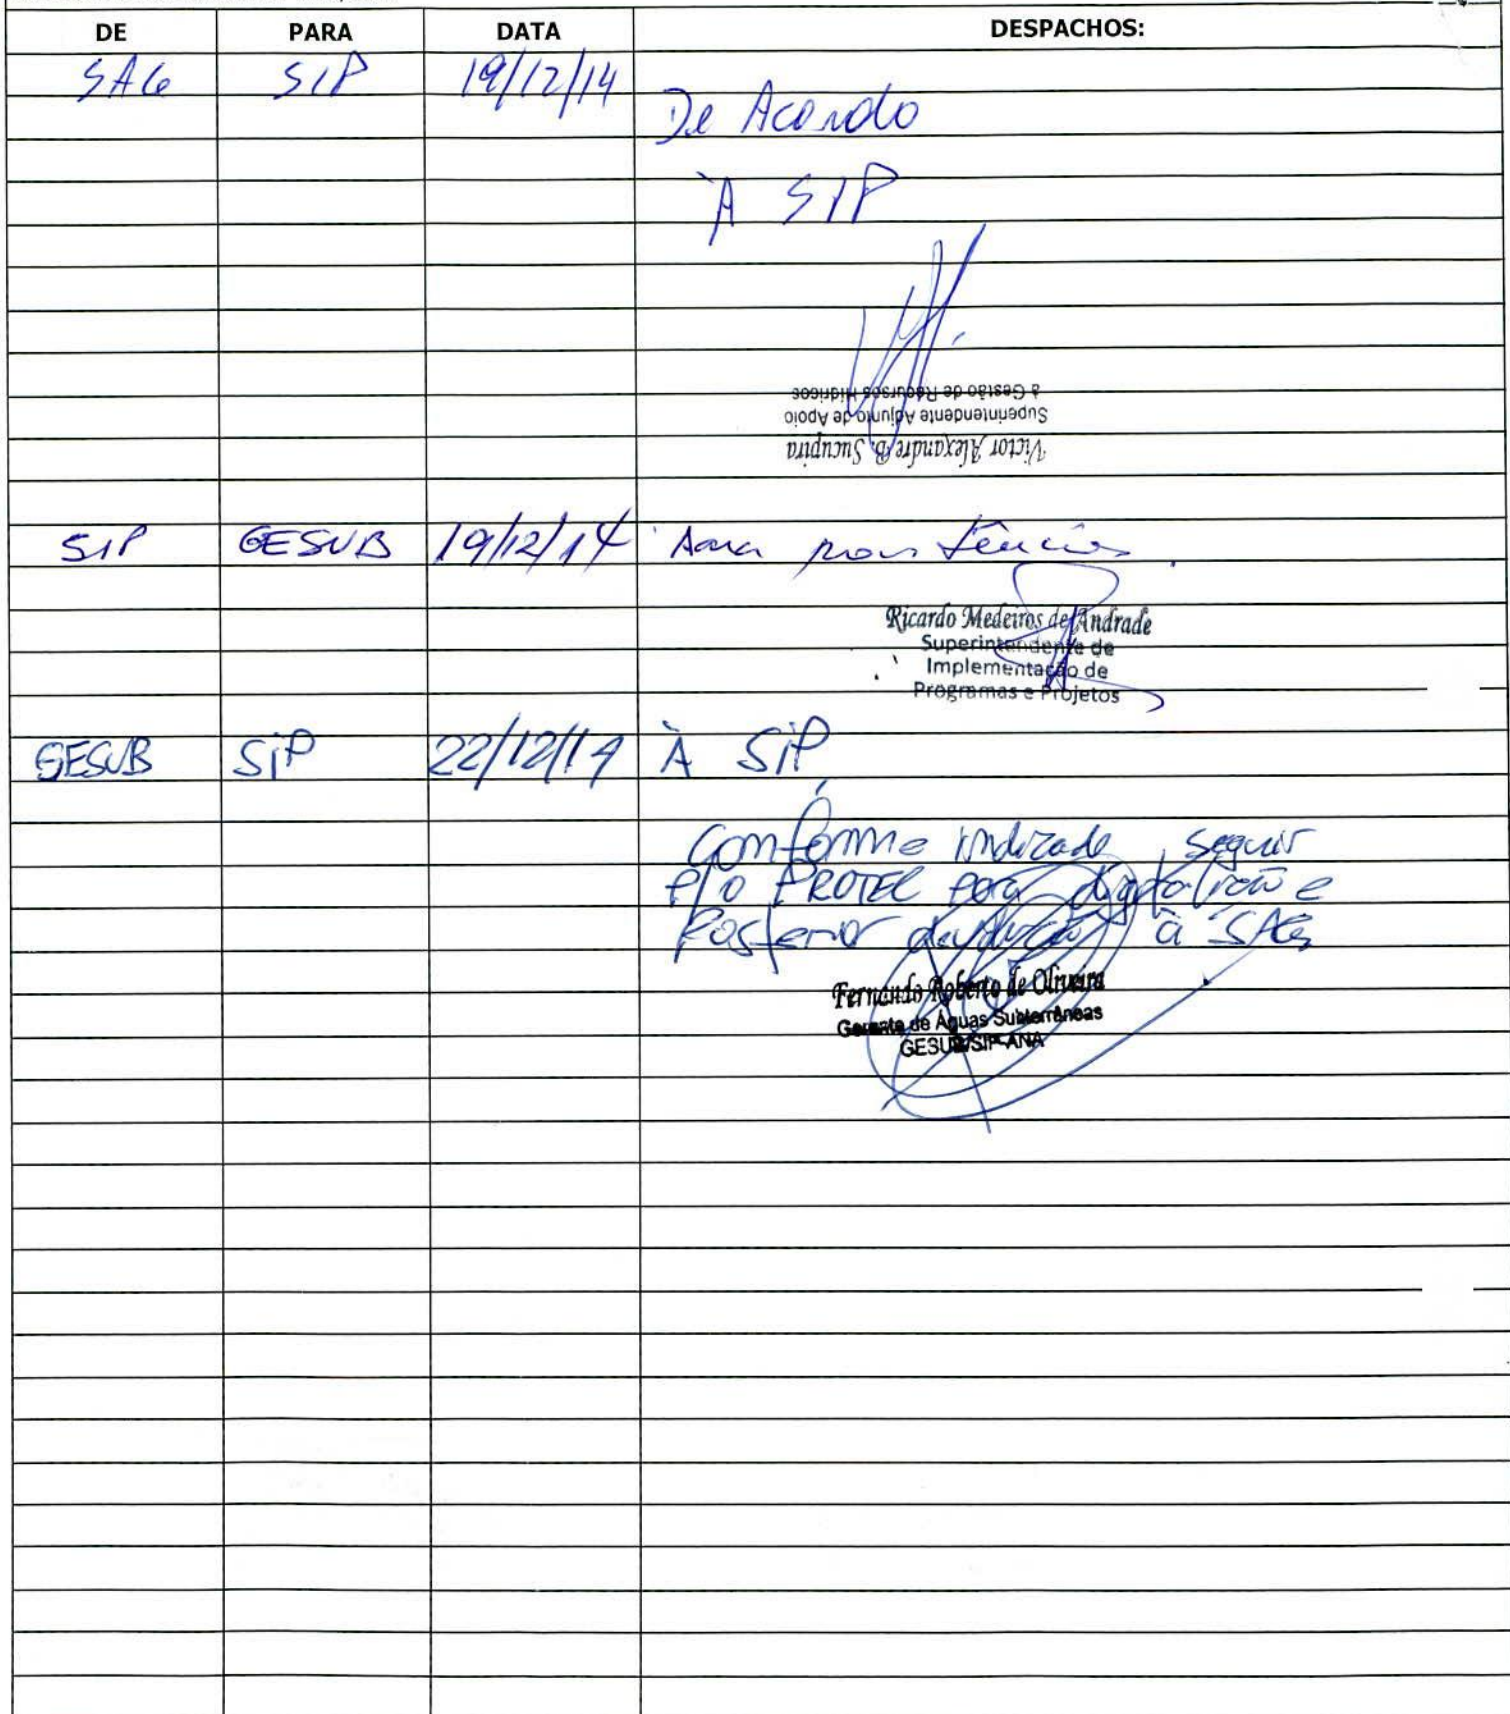 DE PARA DATA DESPACHOS:
SAG SIP 19/12/14
De Acordo
À SIP
Victor Alexandre B. Sucupira
Superintendente Adjunto de Apoio
à Gestão de Recursos Hídricos
SIP GESUB 19/12/14 Para
Ricardo Medeiros de Andrade
Superintendente de
Implementação de
Programas e Projetos
GESUB SIP 22/12/14 À SIP,
Conforme indicado, seguir
p/ o PROTEC para digitalização e
Posterior devolução à SAG
Fernando Roberto de Oliveira
Gerente de Águas Subterrâneas
GESUB/SIP-ANA